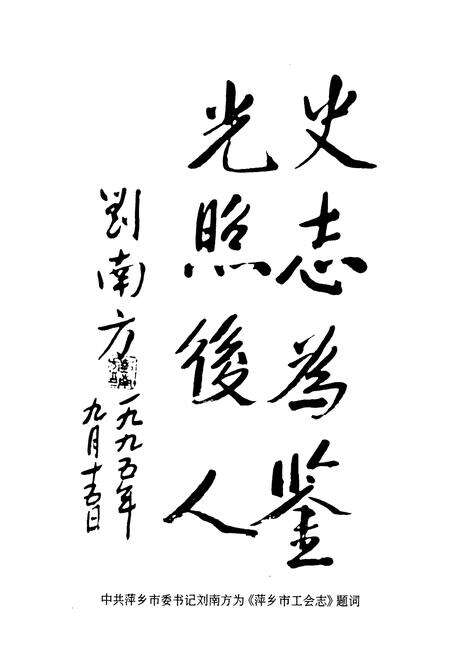 史志為鉴
光照後人
劉南方
一九九五年
九月十五日
中共萍乡市委书记刘南方为《萍乡市工会志》题词